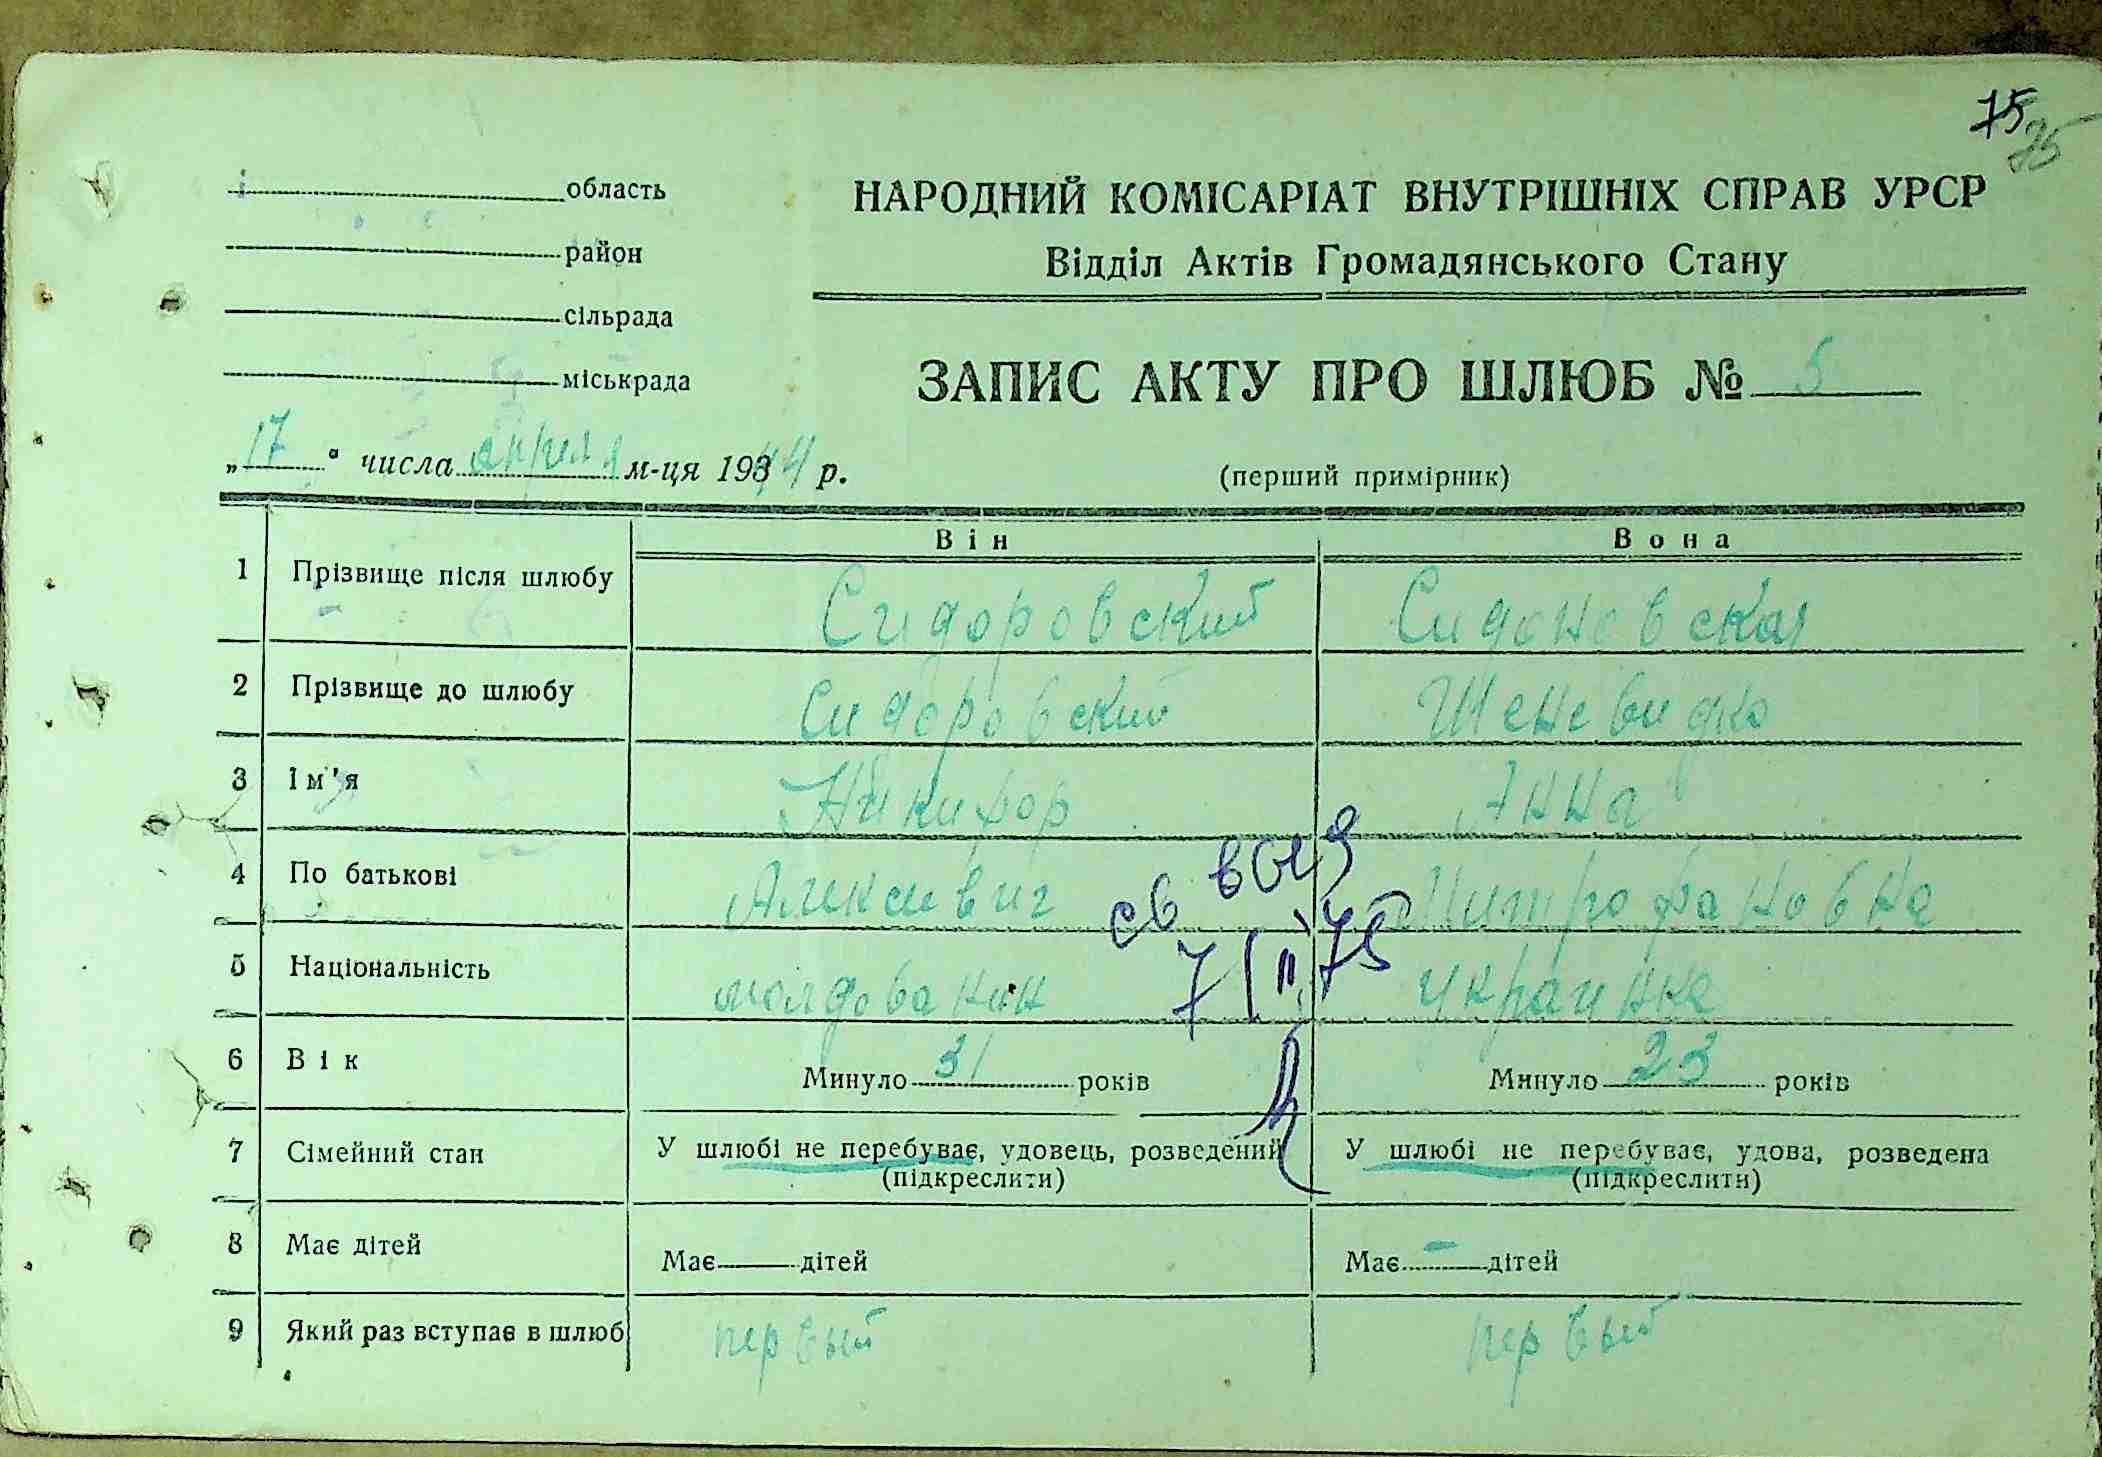 75
75
область
НАРОДНИЙ КОМІСАРІАТ ВНУТРІШНІХ СПРАВ УРСР
район
Відділ Актів Громадянського Стану
сільрада
міськрада
ЗАПИС АКТУ ПРО ШЛЮБ № 5
„17“ числа апреля м-ця 1944 р.
(перший примірник)
Він Вона
1 Прізвище після шлюбу Сидоровский Сидоновская
2 Прізвище до шлюбу Сидоровский Шеневидко
3 Ім'я Никифор Анна
4 По батькові Алексевич Митрофановна
св выд
7/II 75
5 Національність молдованин украинка
6 Вік Минуло 31 років Минуло 23 років
7 Сімейний стан У шлюбі не перебуває, удовець, розведений У шлюбі не перебуває, удова, розведена
(підкреслити) (підкреслити)
8 Має дітей Має — дітей Має — дітей
9 Який раз вступає в шлюб первый первый